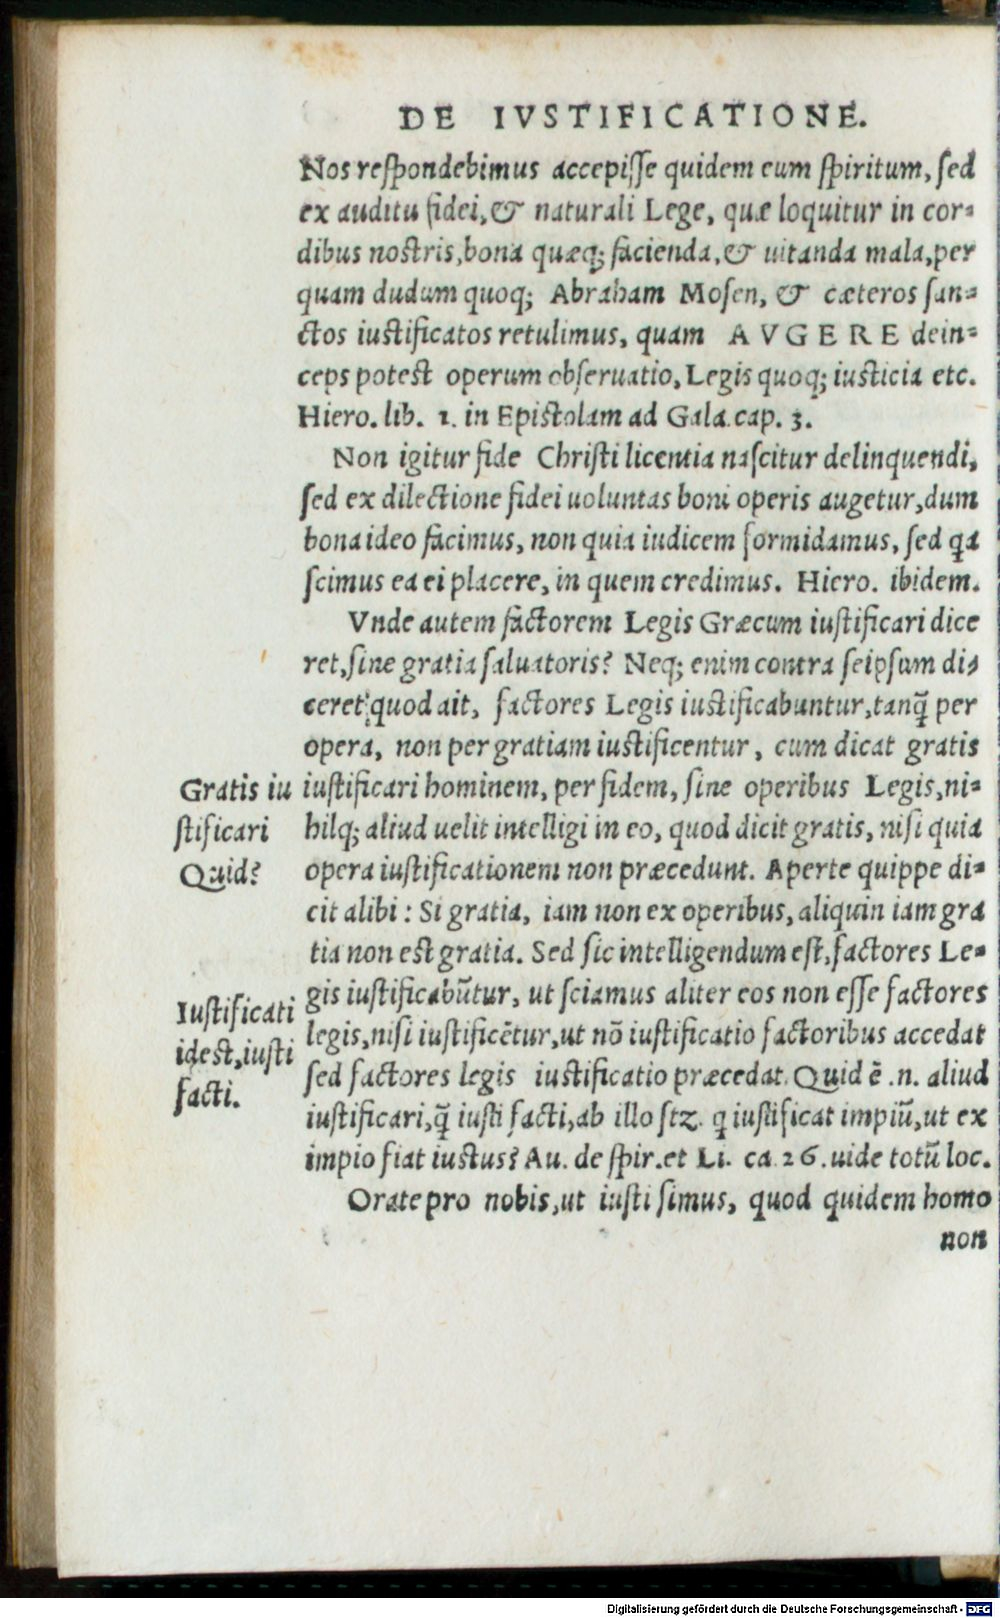 DE IVSTIFICATIONE.
Nos respondebimus accepisse quidem eum spiritum, sed
ex auditu fidei, & naturali Lege, quæ loquitur in cor-
dibus nostris, bona quæq; facienda, & uitanda mala, per
quam dudum quoq; Abraham Mosen, & cæteros san-
ctos iustificatos retulimus, quam AVGERE dein-
ceps potest operum obseruatio, Legis quoq; iusticia etc.
Hiero. lib. 1. in Epistolam ad Gala. cap. 3.
Non igitur fide Christi licentia nascitur delinquendi,
sed ex dilectione fidei uoluntas boni operis augetur, dum
bona ideo facimus, non quia iudicem formidamus, sed qa
scimus ea ei placere, in quem credimus. Hiero. ibidem.
Vnde autem factorem Legis Græcum iustificari dice
ret, sine gratia saluatoris? Neq; enim contra seipsum di-
ceret quod ait, factores Legis iustificabuntur, tanq̃ per
opera, non per gratiam iustificentur, cum dicat gratis
iustificari hominem, per fidem, sine operibus Legis, ni-
hilq; aliud uelit intelligi in eo, quod dicit gratis, nisi quia
opera iustificationem non præcedunt. Aperte quippe di-
cit alibi: Si gratia, iam non ex operibus, alíquin iam gra
tia non est gratia. Sed sic intelligendum est, factores Le-
gis iustificabũtur, ut sciamus aliter eos non esse factores
legis, nisi iustificẽtur, ut nõ iustificatio factoribus accedat
sed factores legis iustificatio præcedat. Quid ẽ .n. aliud
iustificari, q̃ iusti facti, ab illo scz. q iustificat impiũ, ut ex
impio fiat iustus? Au. de spir. et Li. ca. 26. uide totũ loc.
Orate pro nobis, ut iusti simus, quod quidem homo
non
Gratis iu
stificari
Quid?
Iustificati
idest, iusti
facti.
Digitalisierung gefördert durch die Deutsche Forschungsgemeinschaft - DFG